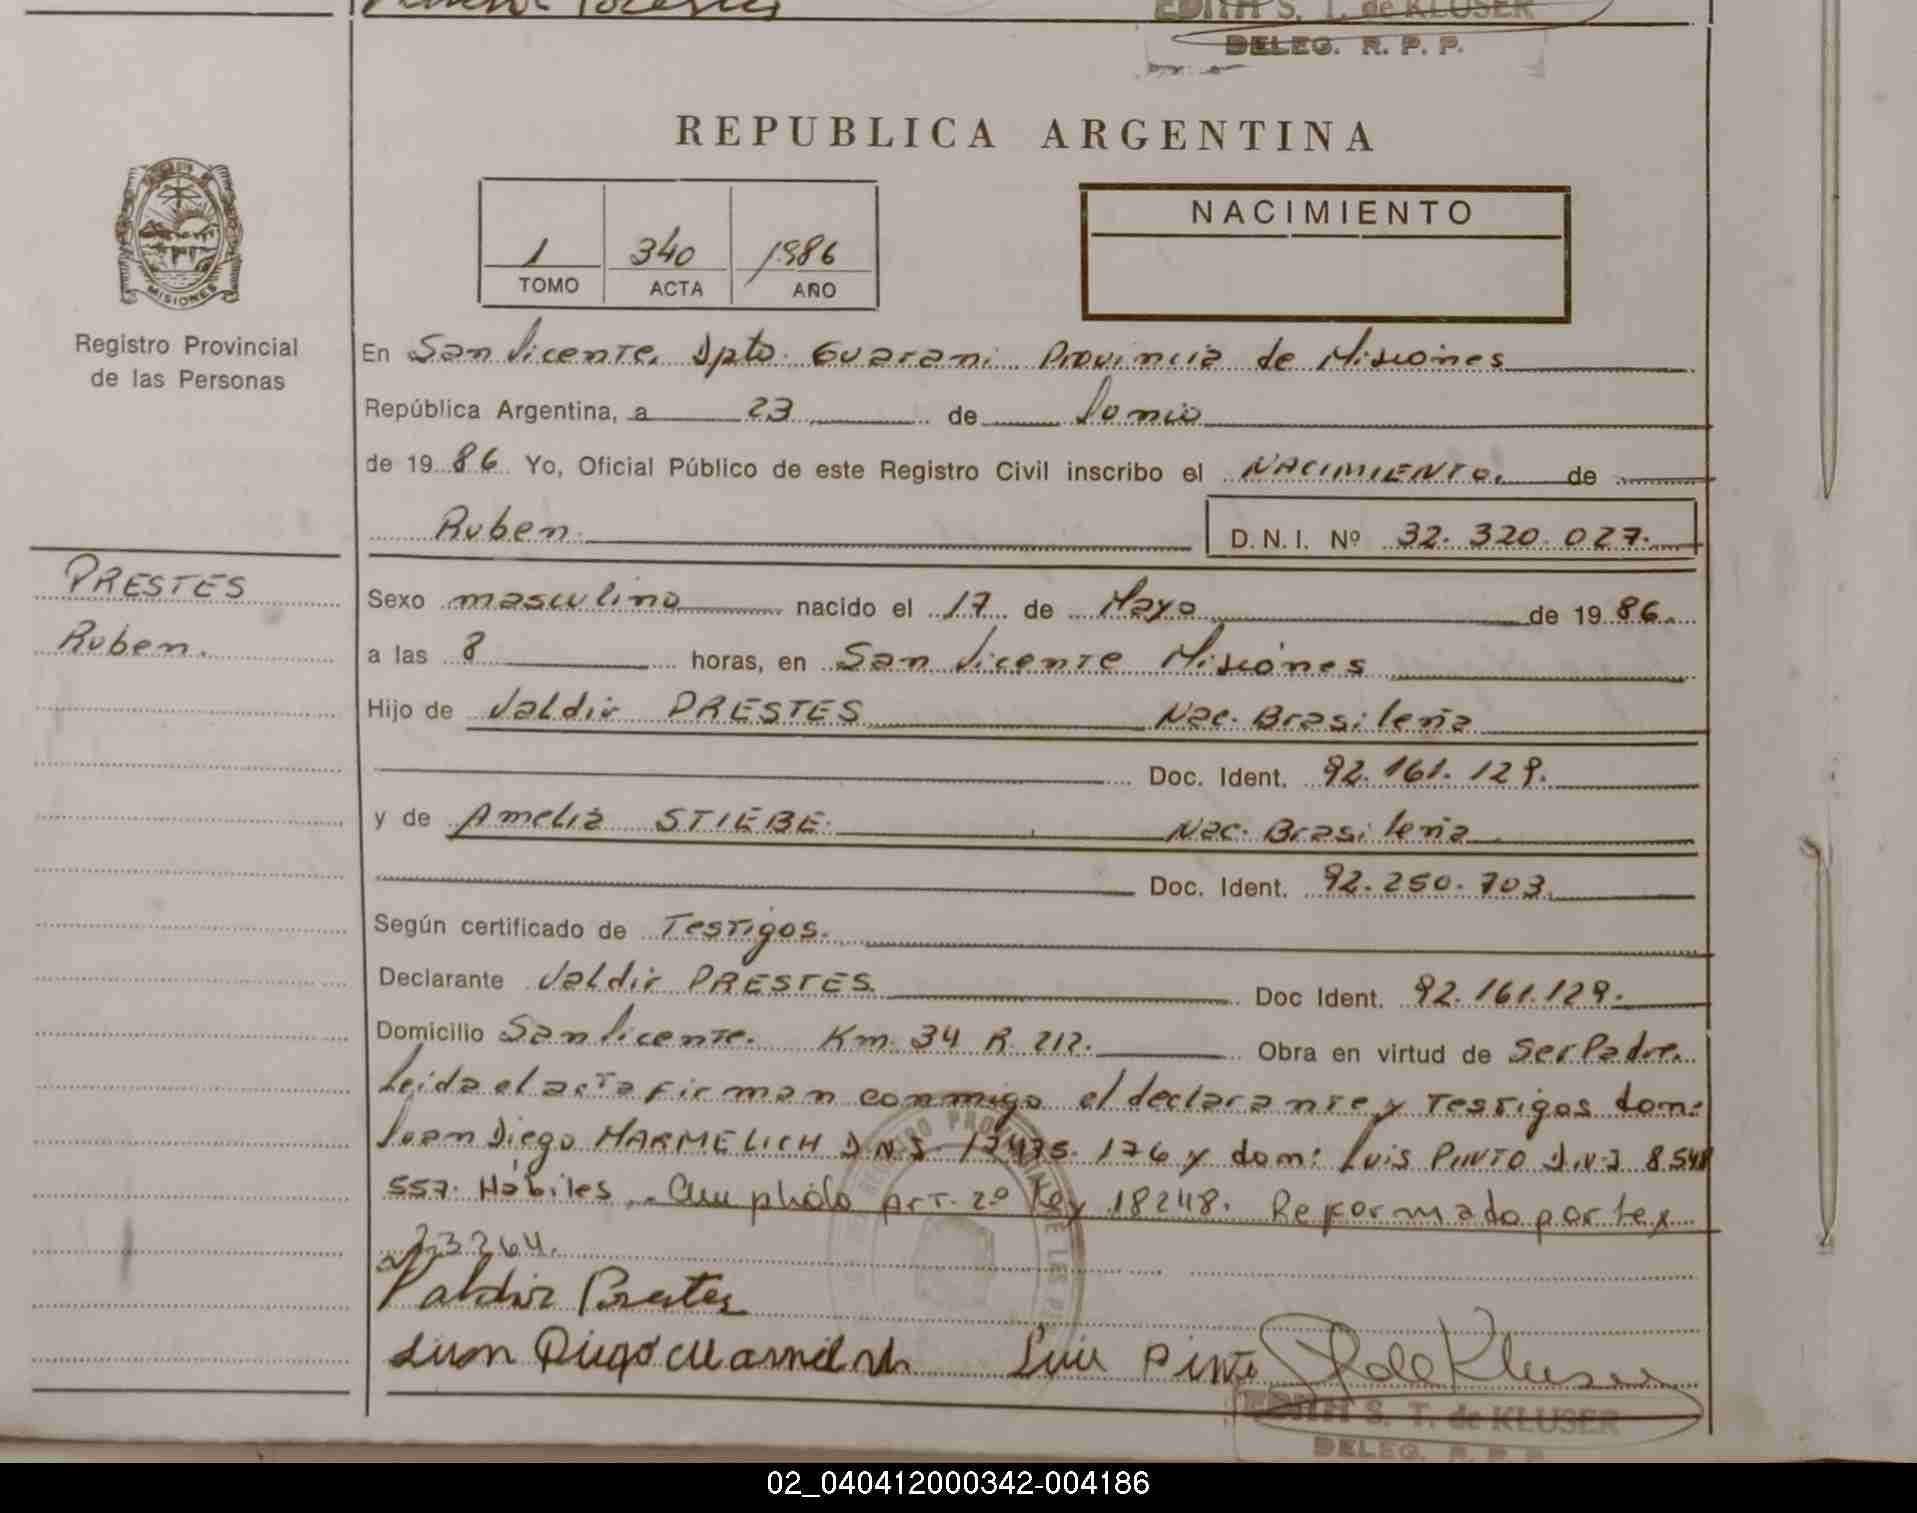 EDITH S. T. de KLUSER
DELEG. R. P. P.
REPUBLICA ARGENTINA
1 340 1986
TOMO ACTA AÑO
NACIMIENTO
MISIONES
Registro Provincial
de las Personas
En San Vicente. Dpto. Guarani Provincia de Misiones
República Argentina, a 23 de Junio
de 19 86 Yo, Oficial Público de este Registro Civil inscribo el NACIMIENTO. de
Ruben. D.N.I. Nº 32.320.027.
PRESTES
Ruben.
Sexo masculino nacido el 17 de Mayo de 19 86.
a las 8 horas, en San Vicente Misiones
Hijo de Valdir PRESTES Nac. Brasileña
Doc. Ident. 92.161.129.
y de Amelia STIEBE. Nac. Brasileña
Doc. Ident. 92.250.703.
Según certificado de Testigos.
Declarante Valdir PRESTES. Doc Ident. 92.161.129.
Domicilio San Vicente. Km. 34 R. 212. Obra en virtud de Ser Padre.
Leida el acta firman conmigo el declarante y Testigos don:
Juan Diego MARMELICH D.N.I. 17475.176 y don: Luis PINTO D.N.I 8.548
557. Hábiles. Cumplido Art. 2º Ley 18248. Reformado por Ley
23264.
Valdir Prestes
Juan Diego Marmelich Luis Pinto de Kluser
EDITH S. T. de KLUSER
DELEG. R. P. P.
02_040412000342-004186